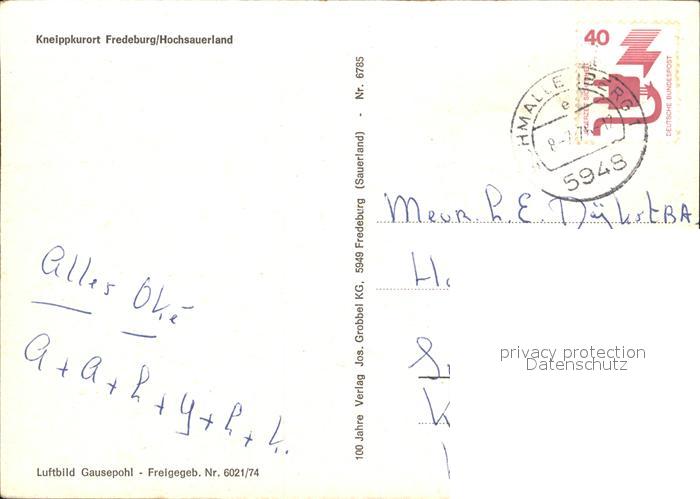 Kneippkurort Fredeburg/Hochsauerland
Alles Oké
A + A + h + y + h + k.
Luftbild Gausepohl - Freigegeb. Nr. 6021/74
100 Jahre Verlag Jos. Grobbel KG, 5949 Fredeburg (Sauerland) - Nr. 6785
40
DEUTSCHE BUNDESPOST
5948
Mevr. L. E. Dijkstra
privacy protection
Datenschutz